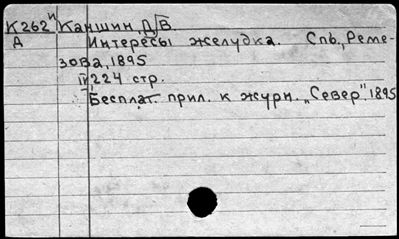 К262и Каншин, Д/В.
Д Интересы желудка. Спб., Реме-
зова, 1895
IV 224 стр.
Бесплат. прил. к журн. „Север“. 1895